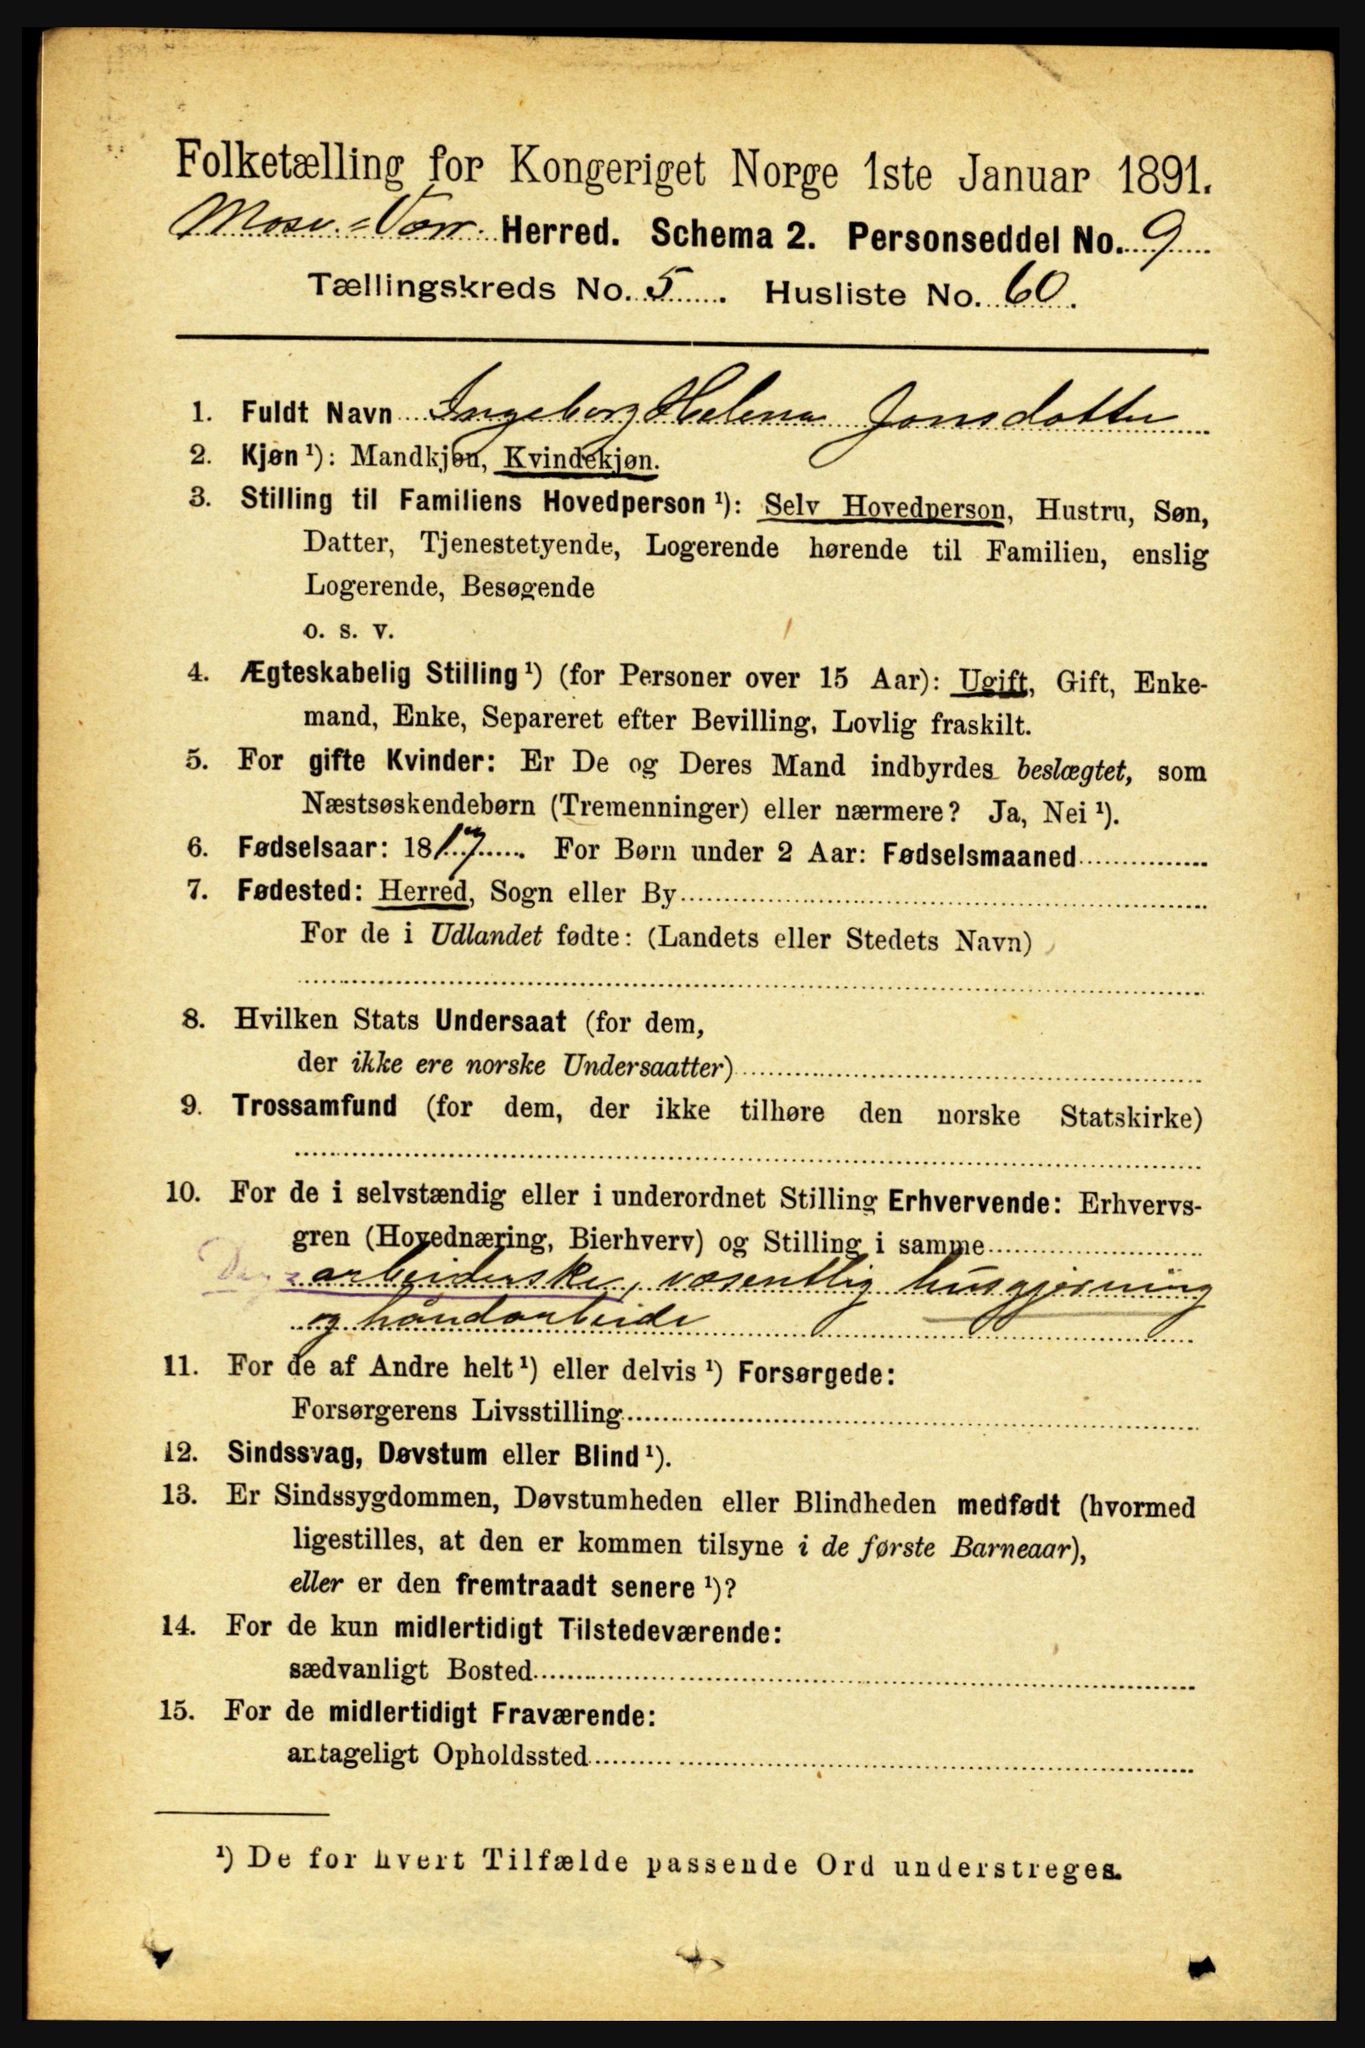 Folketælling for Kongeriget Norge 1ste Januar 1891.
Herred. Schema 2. Personseddel No. 9
Tællingskreds No. 5. Husliste No. 60.
1. Fuldt Navn Ingeborg Helena Jonsdotter
2. Kjøn ¹): Mandkjøn, Kvindekjøn.
3. Stilling til Familiens Hovedperson ¹): Selv Hovedperson, Hustru, Søn,
Datter, Tjenestetyende, Logerende hørende til Familien, enslig
Logerende, Besøgende
o. s. v.
4. Ægteskabelig Stilling ¹) (for Personer over 15 Aar): Ugift, Gift, Enke-
mand, Enke, Separeret efter Bevilling, Lovlig fraskilt.
5. For gifte Kvinder: Er De og Deres Mand indbyrdes beslægtet, som
Næstsøskendebørn (Tremenninger) eller nærmere? Ja, Nei ¹).
6. Fødselsaar: 1817. For Børn under 2 Aar: Fødselsmaaned
7. Fødested: Herred, Sogn eller By
For de i Udlandet fødte: (Landets eller Stedets Navn)
8. Hvilken Stats Undersaat (for dem,
der ikke ere norske Undersaatter)
9. Trossamfund (for dem, der ikke tilhøre den norske Statskirke)
10. For de i selvstændig eller i underordnet Stilling Erhvervende: Erhvervs-
gren (Hovednæring, Bierhverv) og Stilling i samme
arbeiderske, væsentlig husgjerning
og håndarbeide
11. For de af Andre helt ¹) eller delvis ¹) Forsørgede:
Forsørgerens Livsstilling
12. Sindssvag, Døvstum eller Blind ¹).
13. Er Sindssygdommen, Døvstumheden eller Blindheden medfødt (hvormed
ligestilles, at den er kommen tilsyne i de første Barneaar),
eller er den fremtraadt senere ¹)?
14. For de kun midlertidigt Tilstedeværende:
sædvanligt Bosted
15. For de midlertidigt Fraværende:
antageligt Opholdssted
¹) De for hvert Tilfælde passende Ord understreges.